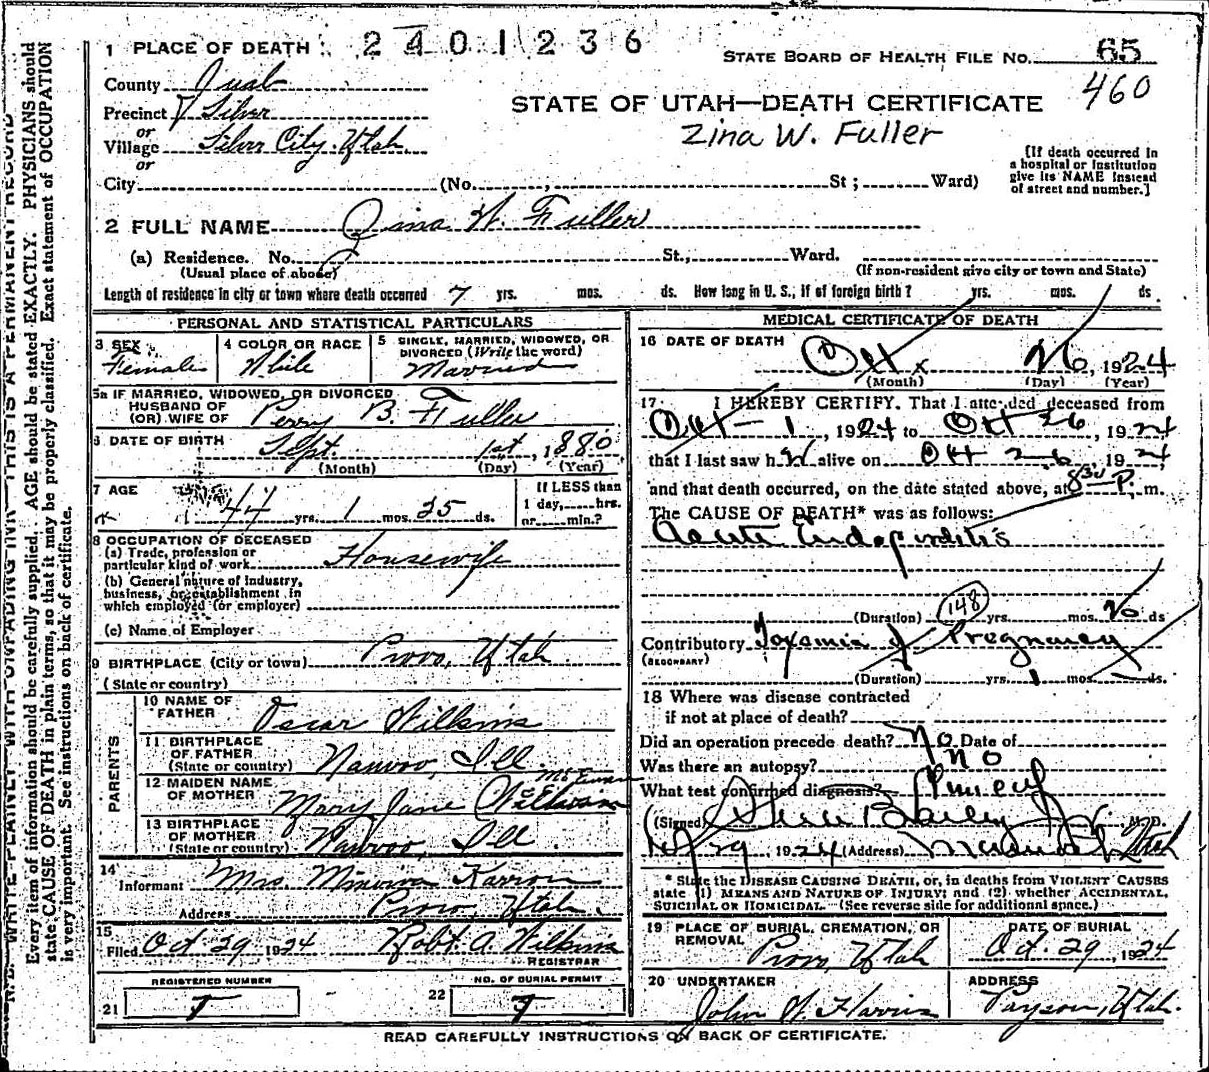 1 PLACE OF DEATH 2401236
STATE BOARD OF HEALTH FILE NO. 65
460
County Juab
STATE OF UTAH—DEATH CERTIFICATE
Precinct Silver
Zina W. Fuller
or
Village Silver City, Utah
or
[If death occurred in a hospital or institution give its NAME instead of street and number.]
City (No. , St; Ward)
2 FULL NAME Zina W. Fuller
(a) Residence. No. St., Ward.
(Usual place of abode) (If non-resident give city or town and State)
Length of residence in city or town where death occurred 7 yrs. mos. ds. How long in U. S., if of foreign birth? yrs. mos. ds
PERSONAL AND STATISTICAL PARTICULARS
3 SEX 4 COLOR OR RACE 5 SINGLE, MARRIED, WIDOWED, OR DIVORCED (Write the word)
Female White Married
5a IF MARRIED, WIDOWED, OR DIVORCED
HUSBAND OF
(OR) WIFE OF Perry B. Fuller
6 DATE OF BIRTH Sept. 1st, 1880
(Month) (Day) (Year)
7 AGE 44 yrs. 1 mos. 25 ds.
If LESS than 1 day, hrs. or min.?
8 OCCUPATION OF DECEASED
(a) Trade, profession or particular kind of work Housewife
(b) General nature of industry, business, or establishment in which employed (or employer)
(c) Name of Employer
9 BIRTHPLACE (City or town) Provo, Utah
(State or country)
PARENTS
10 NAME OF FATHER Oscar Wilkins
11 BIRTHPLACE OF FATHER (State or country) Nauvoo, Ill
12 MAIDEN NAME OF MOTHER Mary Jane
13 BIRTHPLACE OF MOTHER (State or country) Nauvoo, Ill
14 Informant Mrs. Minerva
Address Provo, Utah.
15 Filed Oct 29, 1924 Robt. A. Wilkins
REGISTRAR
REGISTERED NUMBER NO. OF BURIAL PERMIT
21 22
MEDICAL CERTIFICATE OF DEATH
16 DATE OF DEATH Oct 26, 1924
(Month) (Day) (Year)
17 I HEREBY CERTIFY, That I attended deceased from
Oct - 1, 1924 to Oct 26, 1924
that I last saw her alive on Oct 26, 1924
and that death occurred, on the date stated above, at 830 P. m.
The CAUSE OF DEATH* was as follows:
Acute
148
(Duration) yrs. mos. ds
Contributory Toxamia of Pregnancy
(SECONDARY)
(Duration) yrs. 1 mos. ds.
18 Where was disease contracted
if not at place of death?
Did an operation precede death? No Date of
Was there an autopsy? No
What test confirmed diagnosis?
(Signed) Steele Bailey Jr. M.D.
10/29, 1924 (Address) Mammoth Utah
* State the DISEASE CAUSING DEATH, or, in deaths from VIOLENT CAUSES
state (1) MEANS AND NATURE OF INJURY; and (2) whether ACCIDENTAL,
SUICIDAL OR HOMICIDAL. (See reverse side for additional space.)
19 PLACE OF BURIAL, CREMATION, OR REMOVAL DATE OF BURIAL
Provo, Utah Oct. 29, 1924
20 UNDERTAKER ADDRESS
John Payson, Utah.
READ CAREFULLY INSTRUCTIONS ON BACK OF CERTIFICATE.
N. B. WRITE PLAINLY WITH UNFADING INK—THIS IS A PERMANENT RECORD
Every item of information should be carefully supplied. AGE should be stated EXACTLY. PHYSICIANS should
state CAUSE OF DEATH in plain terms, so that it may be properly classified. Exact statement of OCCUPATION
is very important. See instructions on back of certificate.